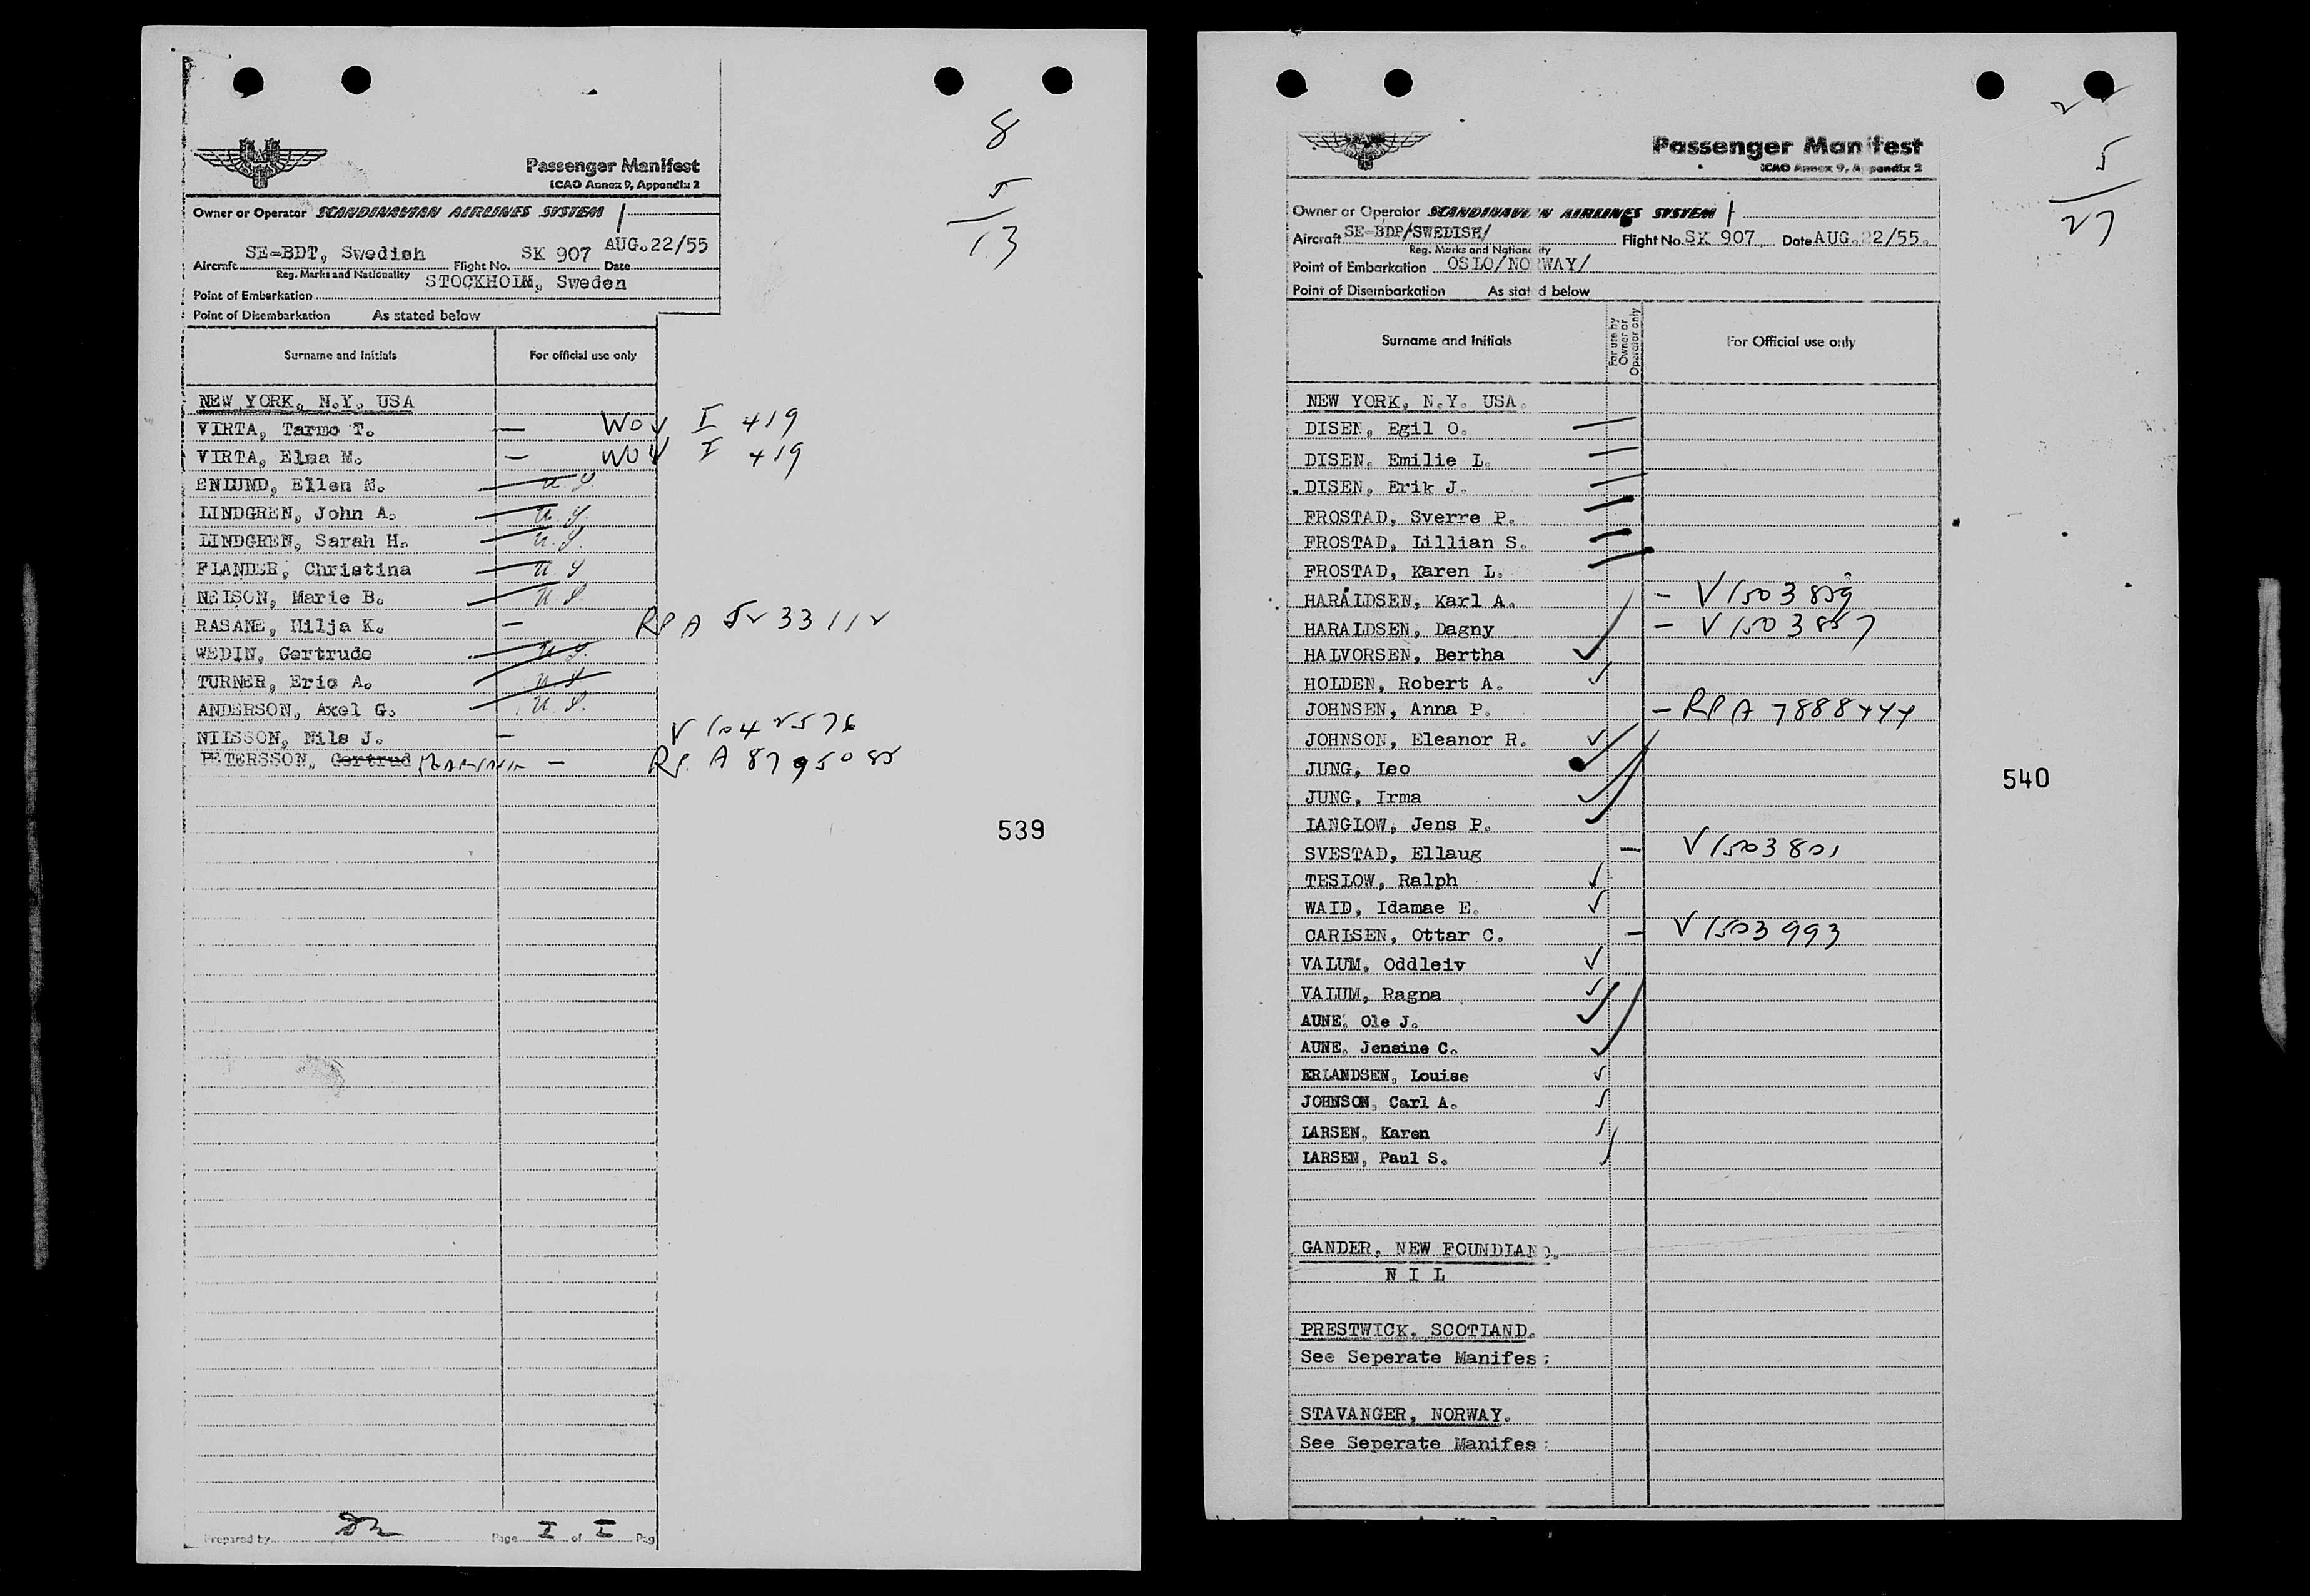 8
5
13
Passenger Manifest
ICAO Annex 9, Appendix 2
Owner or Operator SCANDINAVIAN AIRLINES SYSTEM
Aircraft SE-BDT, Swedish Flight No. SK 907 Date AUG.22/55
Reg. Marks and Nationality
Point of Embarkation STOCKHOLM, Sweden
Point of Disembarkation As stated below
Surname and Initials For official use only
NEW YORK, N.Y. USA
VIRTA, Tarmo T. — WOV I 419
VIRTA, Elma M. — WOV I 419
ENLUND, Ellen M. U.S.
LINDGREN, John A. U.S.
LINDGREN, Sarah H. U.S.
FLANDER, Christina U.S
NELSON, Marie B. U.S.
RASANE, Hilja K. — RPA 5233112
WEDIN, Gertrude U.S.
TURNER, Eric A. U.S
ANDERSON, Axel G. U.S.
NILSSON, Nils J. — V1042576
PETERSSON, Gertrud — RP. A8795085
539
Prepared by Page I of I Pag
5
27
Passenger Manifest
ICAO Annex 9, Appendix 2
Owner or Operator SCANDINAVIAN AIRLINES SYSTEM
Aircraft SE-BDP/SWEDISH/ Flight No. SK 907 Date AUG.22/55.
Reg. Marks and Nationality
Point of Embarkation OSLO/NORWAY/
Point of Disembarkation As stated below
Surname and Initials For use by Owner or Operator only For Official use only
NEW YORK, N.Y. USA.
DISEN, Egil O.
DISEN, Emilie L.
DISEN, Erik J.
FROSTAD, Sverre P.
FROSTAD, Lillian S.
FROSTAD, Karen L.
HARALDSEN, Karl A. — V1503859
HARALDSEN, Dagny — V1503857
HALVORSEN, Bertha
HOLDEN, Robert A.
JOHNSEN, Anna P. — RPA 7888444
JOHNSON, Eleanor R.
JUNG, Leo
JUNG, Irma
LANGLOW, Jens P.
SVESTAD, Ellaug — V1503801
TESLOW, Ralph
WAID, Idamae E.
CARLSEN, Ottar C. — V1503993
VALUM, Oddleiv
VALUM, Ragna
AUNE, Ole J.
AUNE, Jensine C.
ERLANDSEN, Louise
JOHNSON, Carl A.
LARSEN, Karen
LARSEN, Paul S.
540
GANDER, NEW FOUNDLAND.
N I L
PRESTWICK, SCOTLAND.
See Seperate Manifest
STAVANGER, NORWAY.
See Seperate Manifest